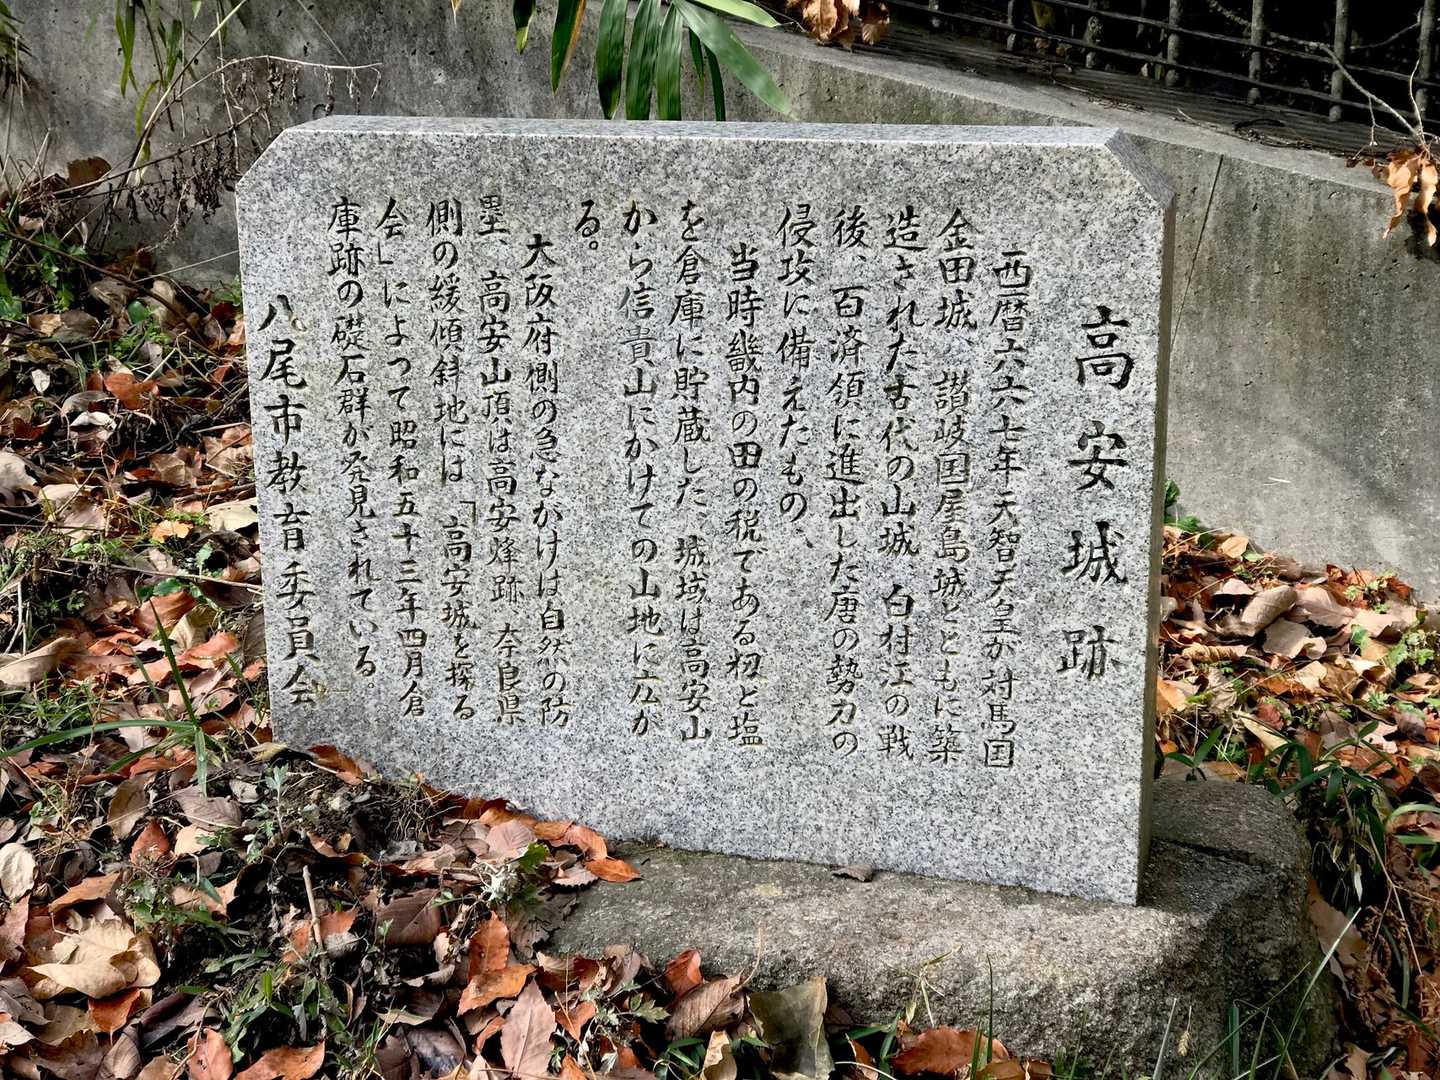 高安城跡
西暦六六七年天智天皇が対馬国
金田城、讃岐国屋島城とともに築
造された古代の山城、白村江の戦
後、百済領に進出した唐の勢力の
侵攻に備えたもの、
当時畿内の田の税である籾と塩
を倉庫に貯蔵した、城域は高安山
から信貴山にかけての山地に広が
る。
大阪府側の急ながけは自然の防
塁、高安山頂は高安烽跡 奈良県
側の緩傾斜地には「高安城を探る
会」によって昭和五十三年四月倉
庫跡の礎石群が発見されている。
八尾市教育委員会